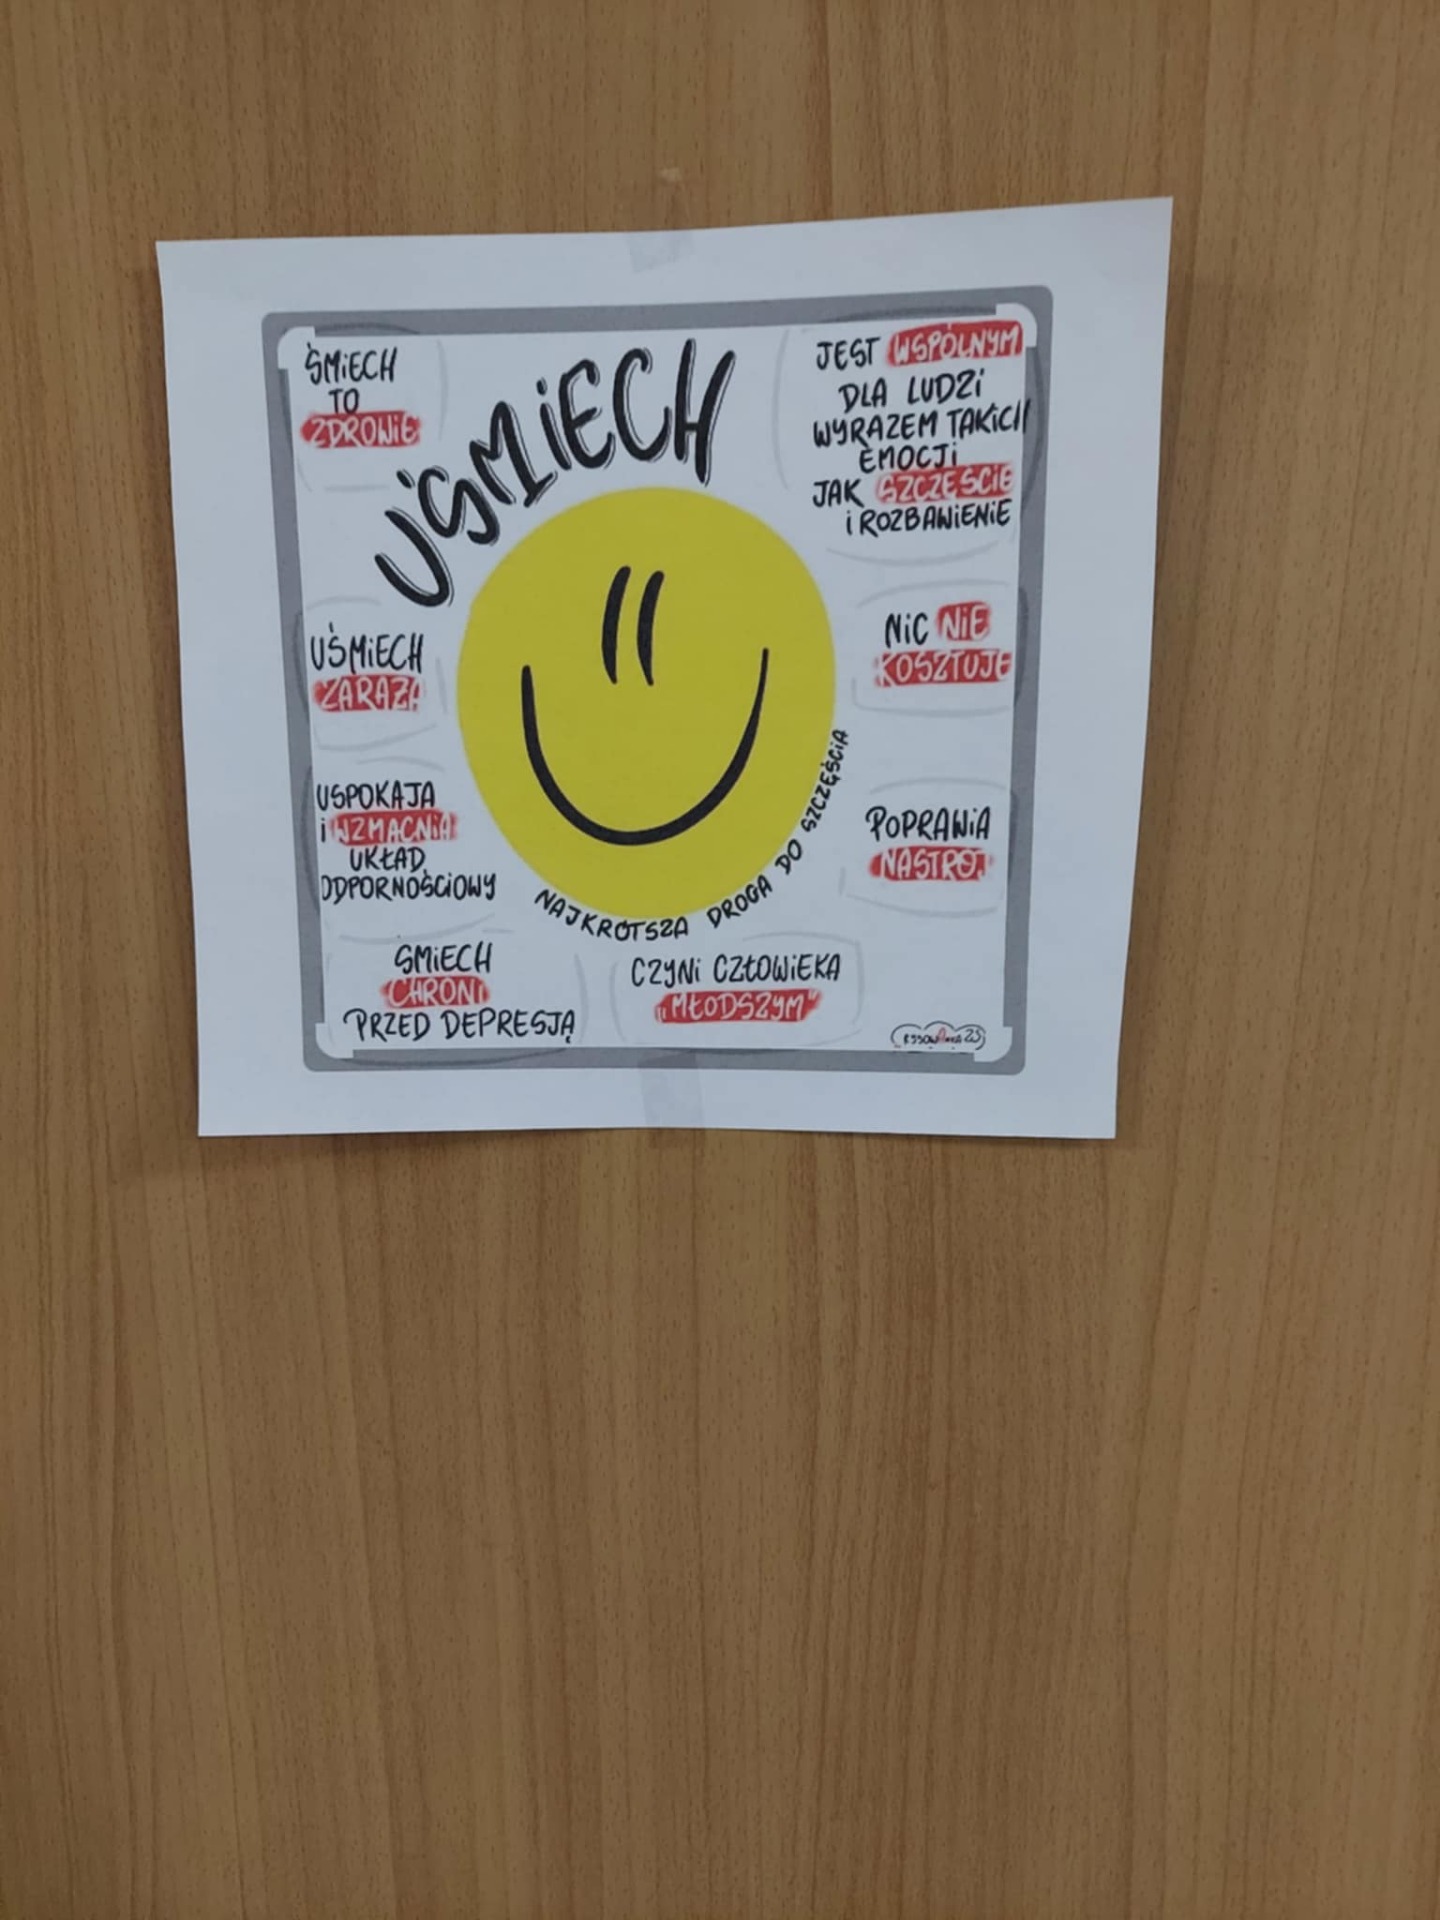 UŚMIECH
ŚMiECH
TO
ZDROWiE
JEST WSPÓLNYM
DLA LUDZi
WYRAZEM TAKiCH
EMOCJi
JAK SZCZĘŚCiE
i ROZBAWiENiE
UŚMiECH
ZARAŻA
NiC NiE
KOSZTUJE
USPOKAJA
i WZMACNiA
UKŁAD
ODPORNOŚCiOWY
POPRAWiA
NASTRÓJ
NAJKRÓTSZA DROGA DO SZCZĘŚCiA
ŚMiECH
CHRONi
PRZED DEPRESJĄ
CZYNi CZŁOWiEKA
„MŁODSZYM"